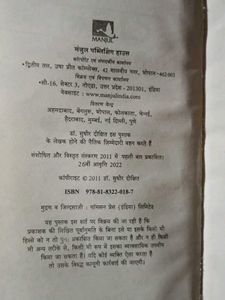 MANJUL
मंजुल पब्लिशिंग हाउस
कॉरपोरेट एवं संपादकीय कार्यालय
•द्वितीय तल, उषा प्रीत कॉम्प्लेक्स, 42 मालवीय नगर, भोपाल-462 003
विक्रय एवं विपणन कार्यालय
•सी-16, सेक्टर 3, नोएडा, उत्तर प्रदेश - 201301, इंडिया
वेबसाइट : www.manjulindia.com
वितरण केन्द्र
अहमदाबाद, बेंगलुरू, भोपाल, कोलकाता, चेन्नई,
हैदराबाद, मुम्बई, नई दिल्ली, पुणे
डॉ. सुधीर दीक्षित इस पुस्तक
के लेखक होने की नैतिक ज़िम्मेदारी वहन करते हैं
संशोधित और विस्तृत संस्करण 2011 में पहली बार प्रकाशित।
26वीं आवृत्ति 2022
कॉपीराइट © 2011 डॉ. सुधीर दीक्षित
ISBN 978-81-8322-018-7
मुद्रण व जिल्दसाज़ी : थॉमसन प्रेस (इंडिया) लिमिटेड
यह पुस्तक इस शर्त पर विक्रय की जा रही है कि
प्रकाशक की लिखित पूर्वानुमति के बिना इसे या इसके किसी भी
हिस्से को न तो पुनः प्रकाशित किया जा सकता है और न ही किसी
भी अन्य तरीक़े से, किसी भी रूप में इसका व्यावसायिक उपयोग
किया जा सकता है। यदि कोई व्यक्ति ऐसा करता है
तो उसके विरुद्ध कानूनी कार्रवाई की जाएगी।